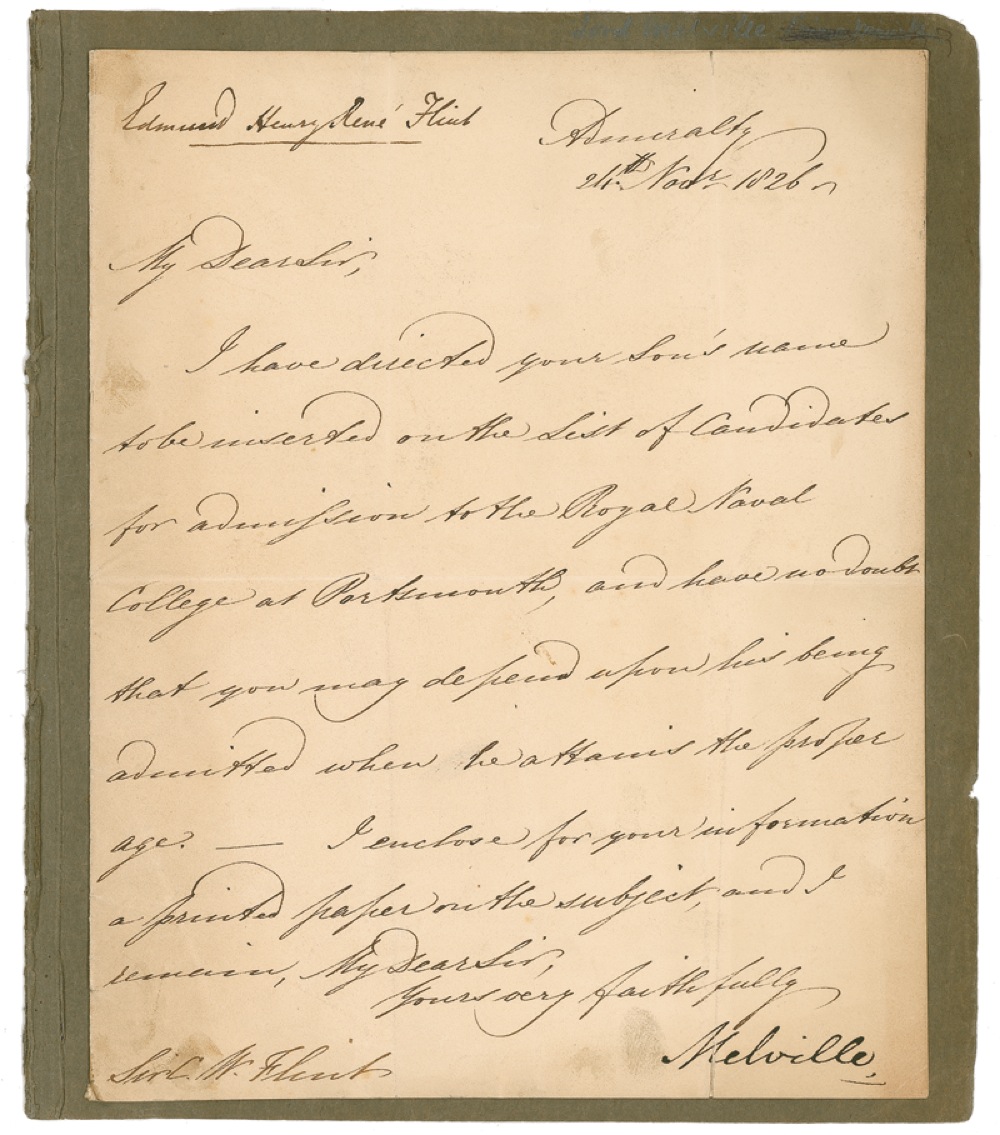 Lord Melville
Edmund Henry René Flint
Admiralty
24th Novr. 1826
My Dear Sir,
I have directed your Son's name
to be inserted on the List of Candidates
for admission to the Royal Naval
College at Portsmouth, and have no doubt
that you may depend upon his being
admitted when he attains the proper
age. — I enclose for your information
a printed paper on the subject, and I
remain, My Dear Sir,
Yours very faithfully
Melville.
Sir C. W. Flint